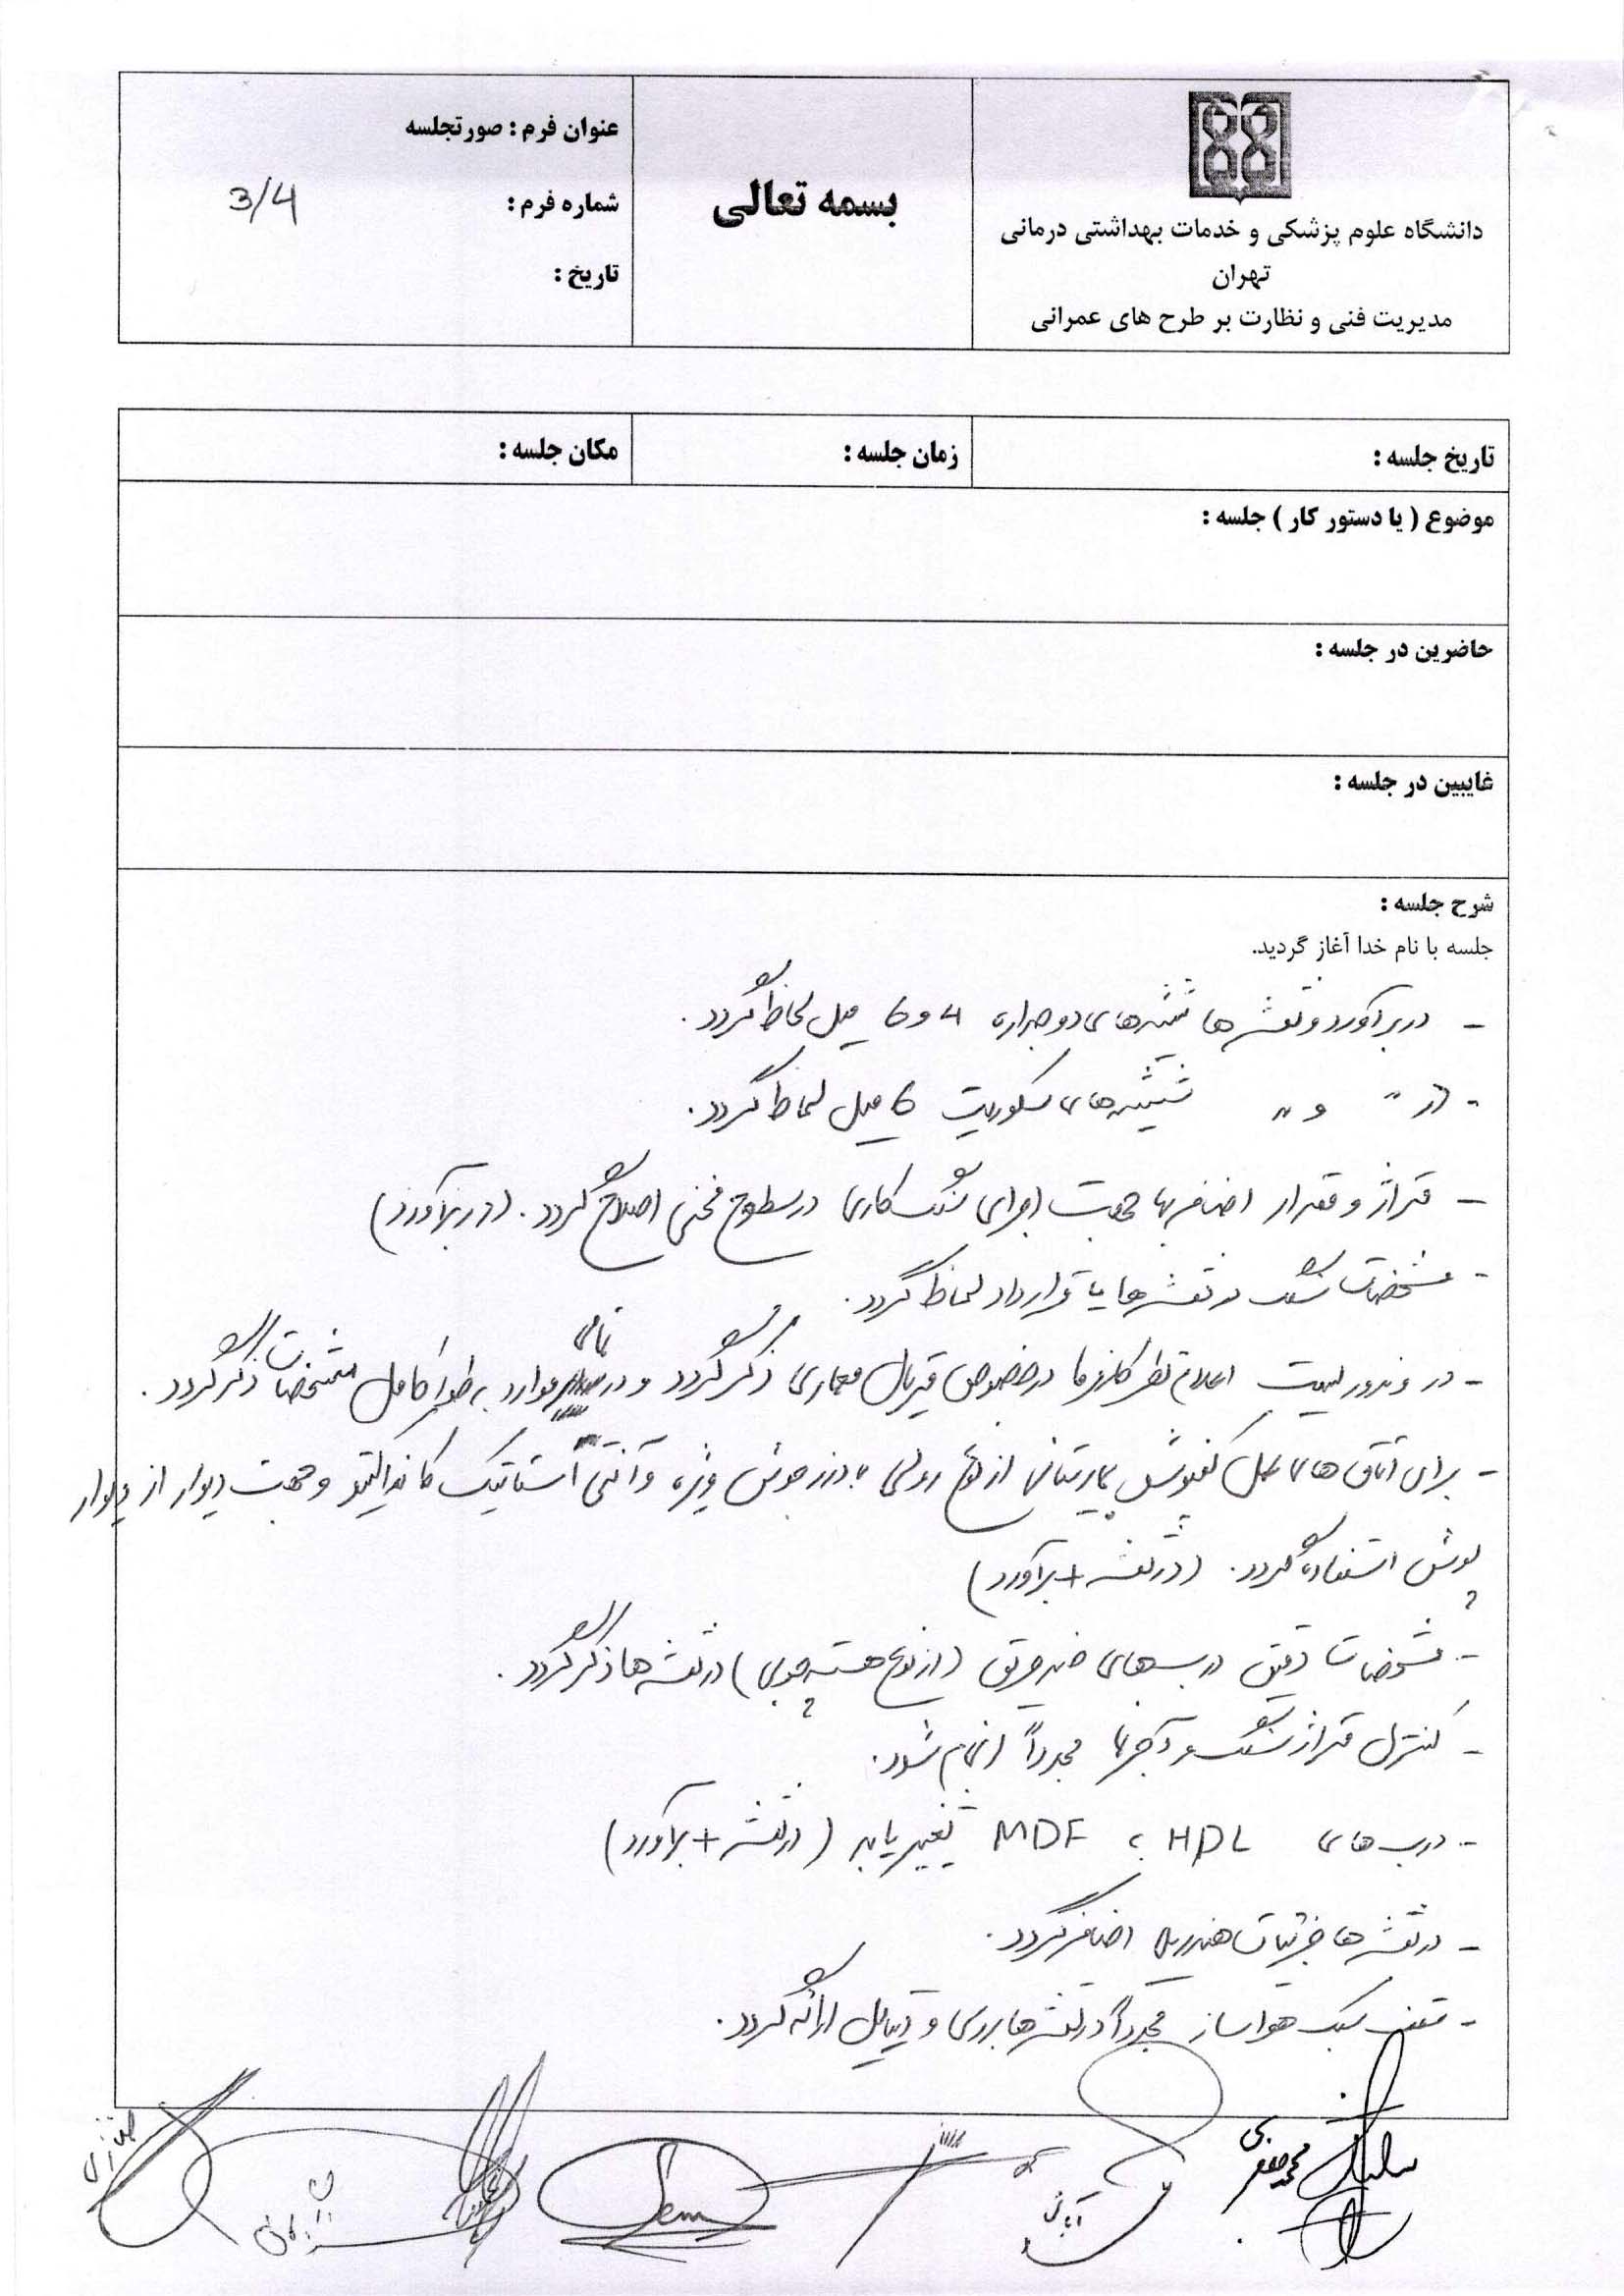 دانشگاه علوم پزشکی و خدمات بهداشتی درمانی
تهران
مدیریت فنی و نظارت بر طرح های عمرانی
بسمه تعالی
عنوان فرم : صورتجلسه
شماره فرم : 3/4
تاریخ :
تاریخ جلسه :
زمان جلسه :
مکان جلسه :
موضوع ( یا دستور کار ) جلسه :
حاضرین در جلسه :
غایبین در جلسه :
شرح جلسه :
جلسه با نام خدا آغاز گردید.
- در برآورد و نقشه ها شیشه های دو جداره 4 و 6 میل لحاظ گردد.
- در " و " شیشه های سکوریت 6 میل لحاظ گردد.
- متراژ و مقدار اضافه بها جهت اجرای سنگ کاری در سطوح منحنی اصلاح گردد. (در برآورد)
- مشخصات سنگ در نقشه ها یا قرارداد لحاظ گردد.
- در وندور لیست اعلام نظر کارفرما در خصوص متریال معماری ذکر گردد و در تمامی موارد به طور کامل مشخصات ذکر گردد.
- برای اتاق های عمل کفپوش بیمارستانی از نوع رولی با درز جوش ویژه و آنتی استاتیک کانداکتیو و جهت دیوار از دیوار
پوش استفاده گردد. (در نقشه + برآورد)
- مشخصات دقیق درب های ضد حریق (از نوع هسته چوبی) در نقشه ها ذکر گردد.
- کنترل متراژ سنگ و آجرنما مجدداً انجام شود.
- درب های HDL به MDF تغییر یابد (در نقشه + برآورد)
- در نقشه ها جزئیات هندریل اضافه گردد.
- سقف سبک هواساز مجدداً در نقشه ها بررسی و دیتایل ارائه گردد.
محمد جعفر